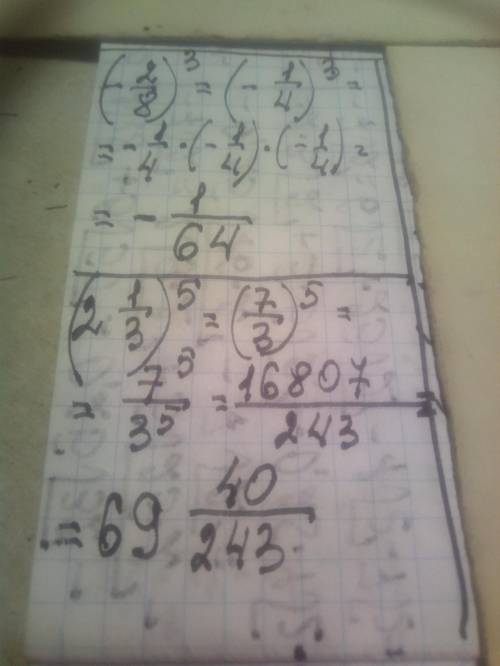 (-2/8)³ = (-1/4)³ =
= -1/4 · (-1/4) · (-1/4) =
= - 1/64
(2 1/3)⁵ = (7/3)⁵ =
= 7⁵/3⁵ = 16807/243 =
= 69 40/243